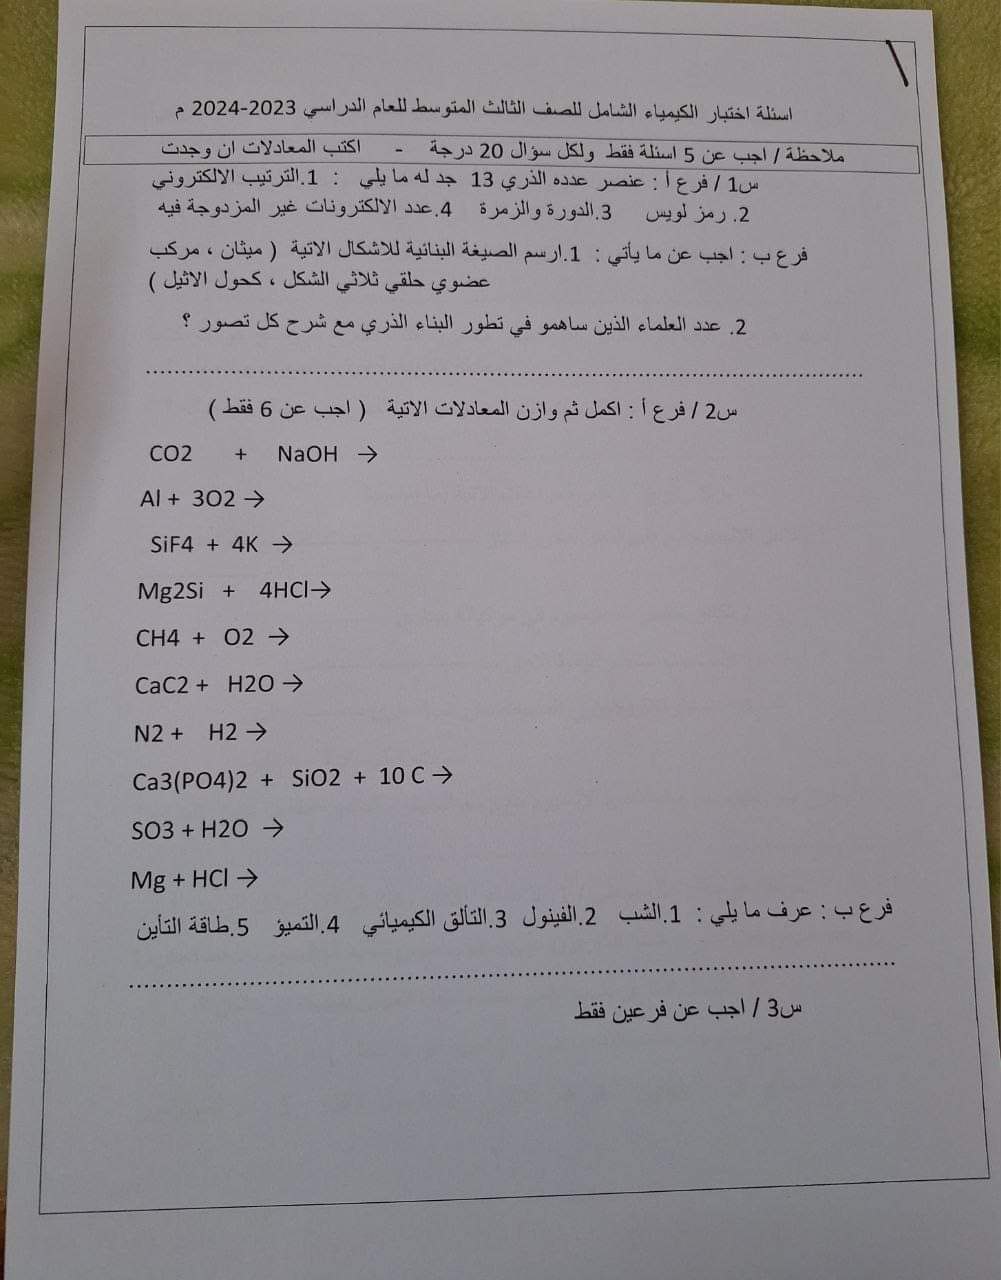 اسئلة اختبار الكيمياء الشامل للصف الثالث المتوسط للعام الدراسي 2023-2024 م
ملاحظة / اجب عن 5 اسئلة فقط ولكل سؤال 20 درجة - اكتب المعادلات ان وجدت
س1 / فرع أ : عنصر عدده الذري 13 جد له ما يلي : 1.الترتيب الالكتروني
2. رمز لويس 3.الدورة والزمرة 4.عدد الالكترونات غير المزدوجة فيه
فرع ب : اجب عن ما يأتي : 1.ارسم الصيغة البنائية للاشكال الاتية ( ميثان ، مركب
عضوي حلقي ثلاثي الشكل ، كحول الاثيل )
2. عدد العلماء الذين ساهمو في تطور البناء الذري مع شرح كل تصور ؟
س2 / فرع أ : اكمل ثم وازن المعادلات الاتية ( اجب عن 6 فقط )
CO2 + NaOH →
Al + 3O2 →
SiF4 + 4K →
Mg2Si + 4HCl→
CH4 + O2 →
CaC2 + H2O →
N2 + H2 →
Ca3(PO4)2 + SiO2 + 10 C →
SO3 + H2O →
Mg + HCl →
فرع ب : عرف ما يلي : 1.الشب 2.الفينول 3.التألق الكيميائي 4.التميؤ 5.طاقة التأين
س3 / اجب عن فرعين فقط